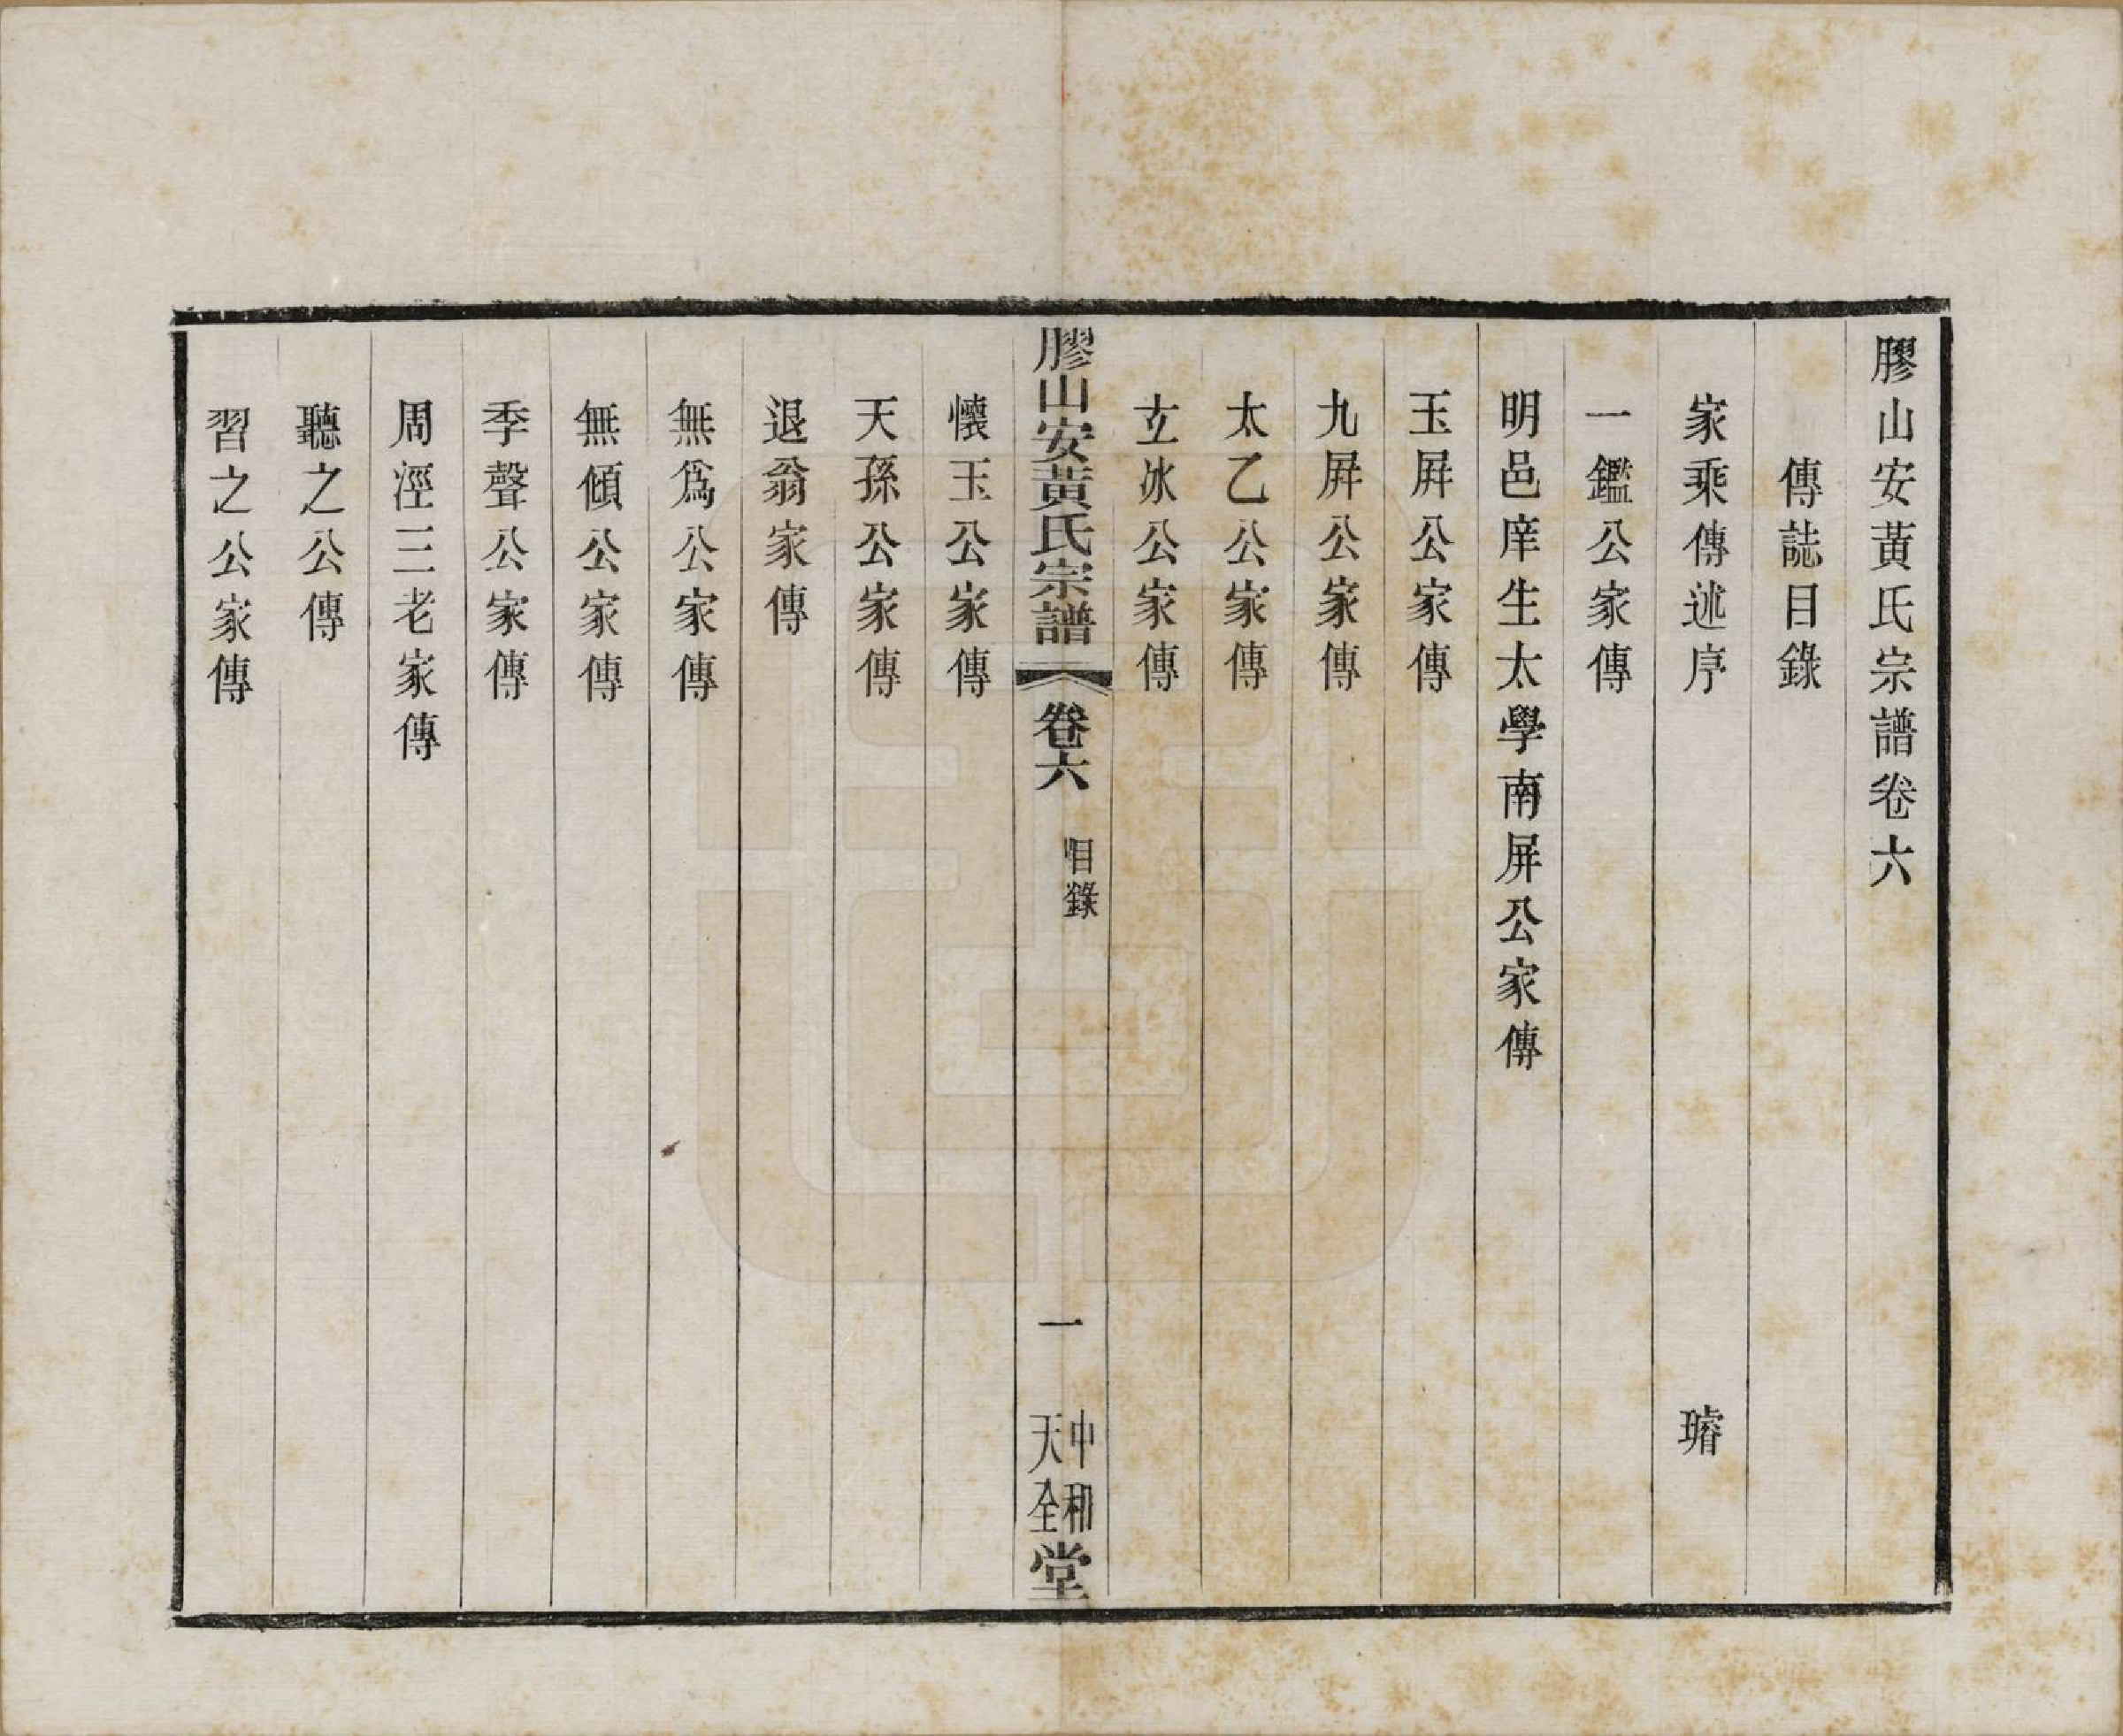 膠山安黃氏宗譜卷六
傳誌目錄
家乘傳述序 璿
一鑑公家傳
明邑庠生太學南屏公家傳
玉屏公家傳
九屏公家傳
太乙公家傳
玄冰公家傳
膠山安黃氏宗譜 卷六 目錄 一 中和天全堂
懷玉公家傳
天孫公家傳
退翁家傳
無爲公家傳
無傾公家傳
季聲公家傳
周涇三老家傳
聽之公傳
習之公家傳